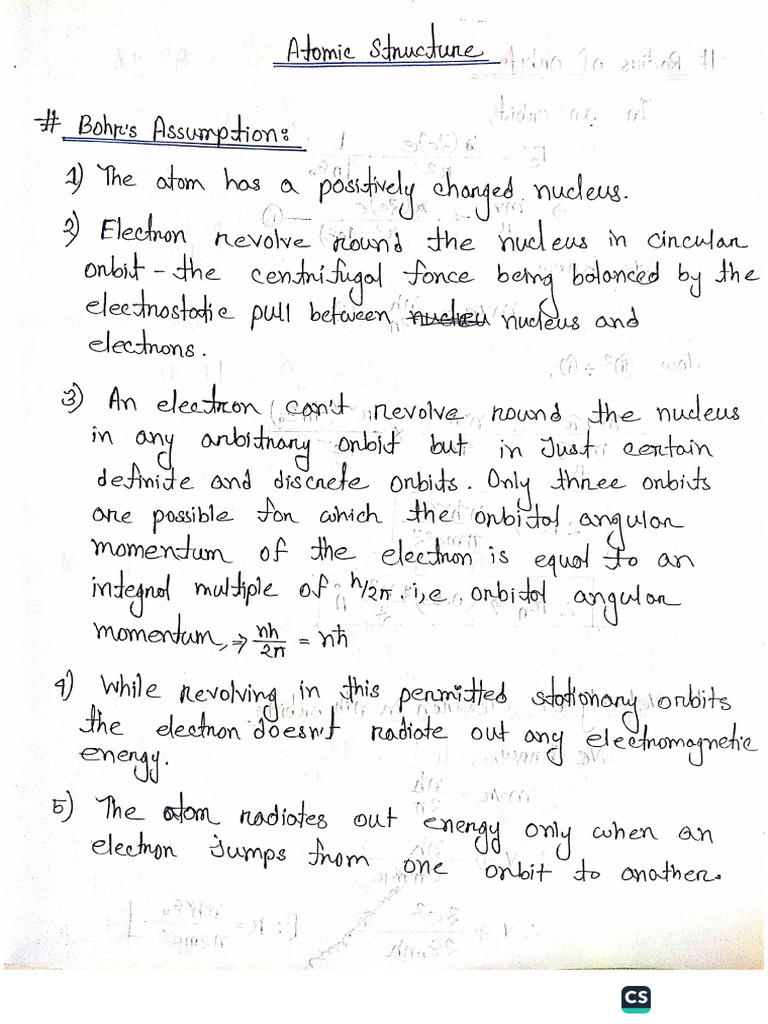 Atomic Structure
# Bohr's Assumption:
1) The atom has a positively charged nucleus.
2) Electron revolve round the nucleus in circular
orbit - the centrifugal force being balanced by the
electrostatic pull between nucleus and
electrons.
3) An electron can't revolve round the nucleus
in any arbitrary orbit but in Just certain
definite and discrete orbits. Only three orbits
are possible for which the orbital angular
momentum of the electron is equal to an
integral multiple of h/2π. i,e orbital angular
momentum, ⇒ nh/2π = nħ
4) While revolving in this permitted stationary orbits
the electron doesn't radiate out any electromagnetic
energy.
5) The atom radiates out energy only when an
electron Jumps from one orbit to another.
CS